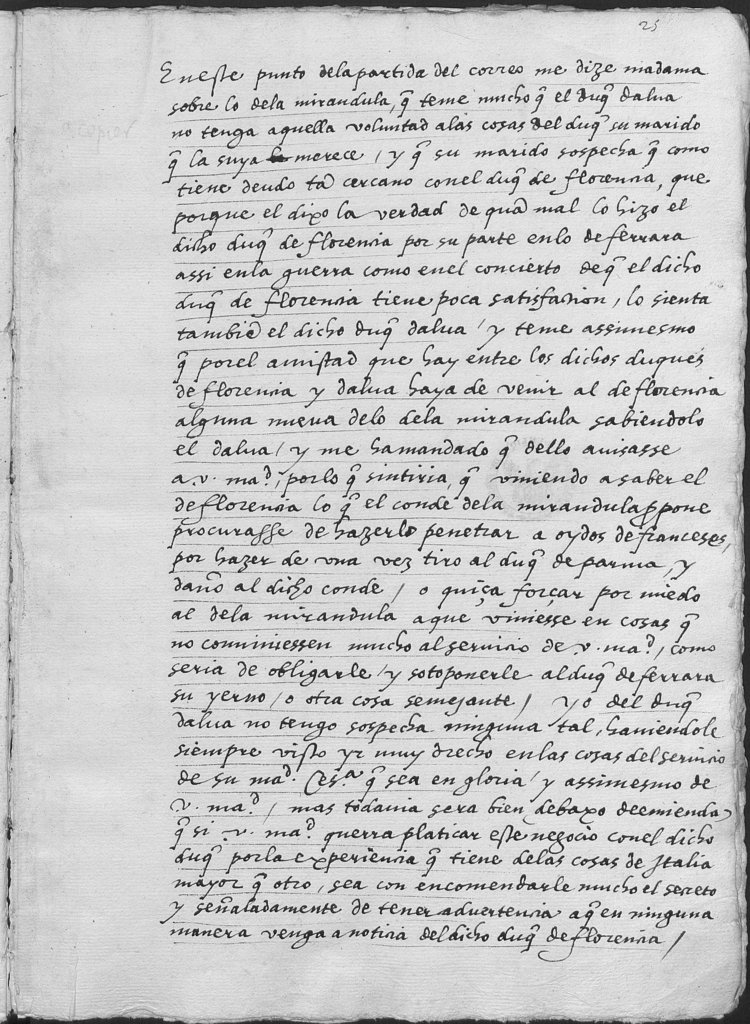 25
Eneste punto dela partida del correo me dize madama
sobre lo dela mirandula, q̃ teme mucho q̃ el duq̃ dalua
no tenga aquella voluntad alas cosas del duq̃ su marido
q̃ la suya merece / y q̃ su marido sospecha q̃ como
tiene deudo tã cercano conel duq̃ de florencia, que
porque el dixo la verdad de quã mal lo hizo el
dicho duq̃ de florencia por su parte enlo de ferrara
assi enla guerra como enel concierto de q̃ el dicho
duq̃ de florencia tiene poca satisfation, lo sienta
tambiẽ el dicho duq̃ dalua / y teme assimesmo
q̃ porel amistad que hay entre los dichos duques
de florencia y dalua haya de venir al de florencia
alguna nueua delo dela mirandula sabiendolo
el dalua / y me ha mandado q̃ dello auisasse
a .v. mad, porlo q̃ sintiria, q̃ viniendo a saber el
de florencia lo q̃ el conde dela mirandula ppone
procurasse de hazerlo penetrar a oydos de franceses,
por hazer de vna vez tiro al duq̃ de parma, y
daño al dicho conde / o quiça forçar por miedo
al dela mirandula a que viniesse en cosas q̃
no conuiniessen mucho al seruicio de .v. mad, como
seria de obligarle / y sotoponerle al duq̃ de ferrara
su yerno / o otra cosa semejante / yo del duq̃
dalua no tengo sospecha ninguna tal, hauiendole
siempre visto yr muy drecho en las cosas del seruicio
de su mad. Ces.ª q̃ sea en gloria / y assimesmo de
.v. mad, / mas todauia sera bien debaxo de emienda
q̃ si .v. mad querra platicar este negocio conel dicho
duq̃ porla experiencia q̃ tiene delas cosas de Italia
mayor q̃ otro, sea con encomendarle mucho el secreto
y señaladamente de tener aduertencia a q̃ en ninguna
manera venga a noticia del dicho duq̃ de florencia /